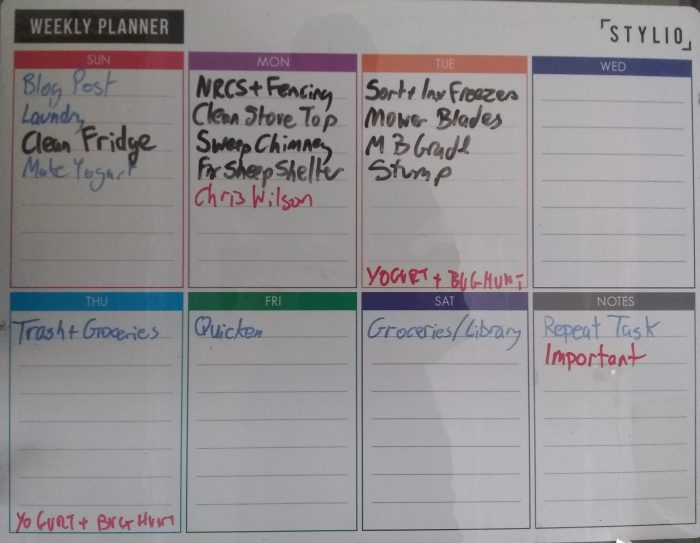 WEEKLY PLANNER
STYLIO
SUN
Blog Post
Laundry
Clean Fridge
Make Yogurt
MON
NRCS + Fencing
Clean Stove Top
Sweep Chimney
Fix Sheep Shelter
Chris Wilson
TUE
Sort + Inv Freezers
Mower Blades
M B Grade
Stump
YOGURT + BUG HUNT
WED
THU
Trash + Groceries
YOGURT + BUG HUNT
FRI
Quicken
SAT
Groceries/Library
NOTES
Repeat Task
Important